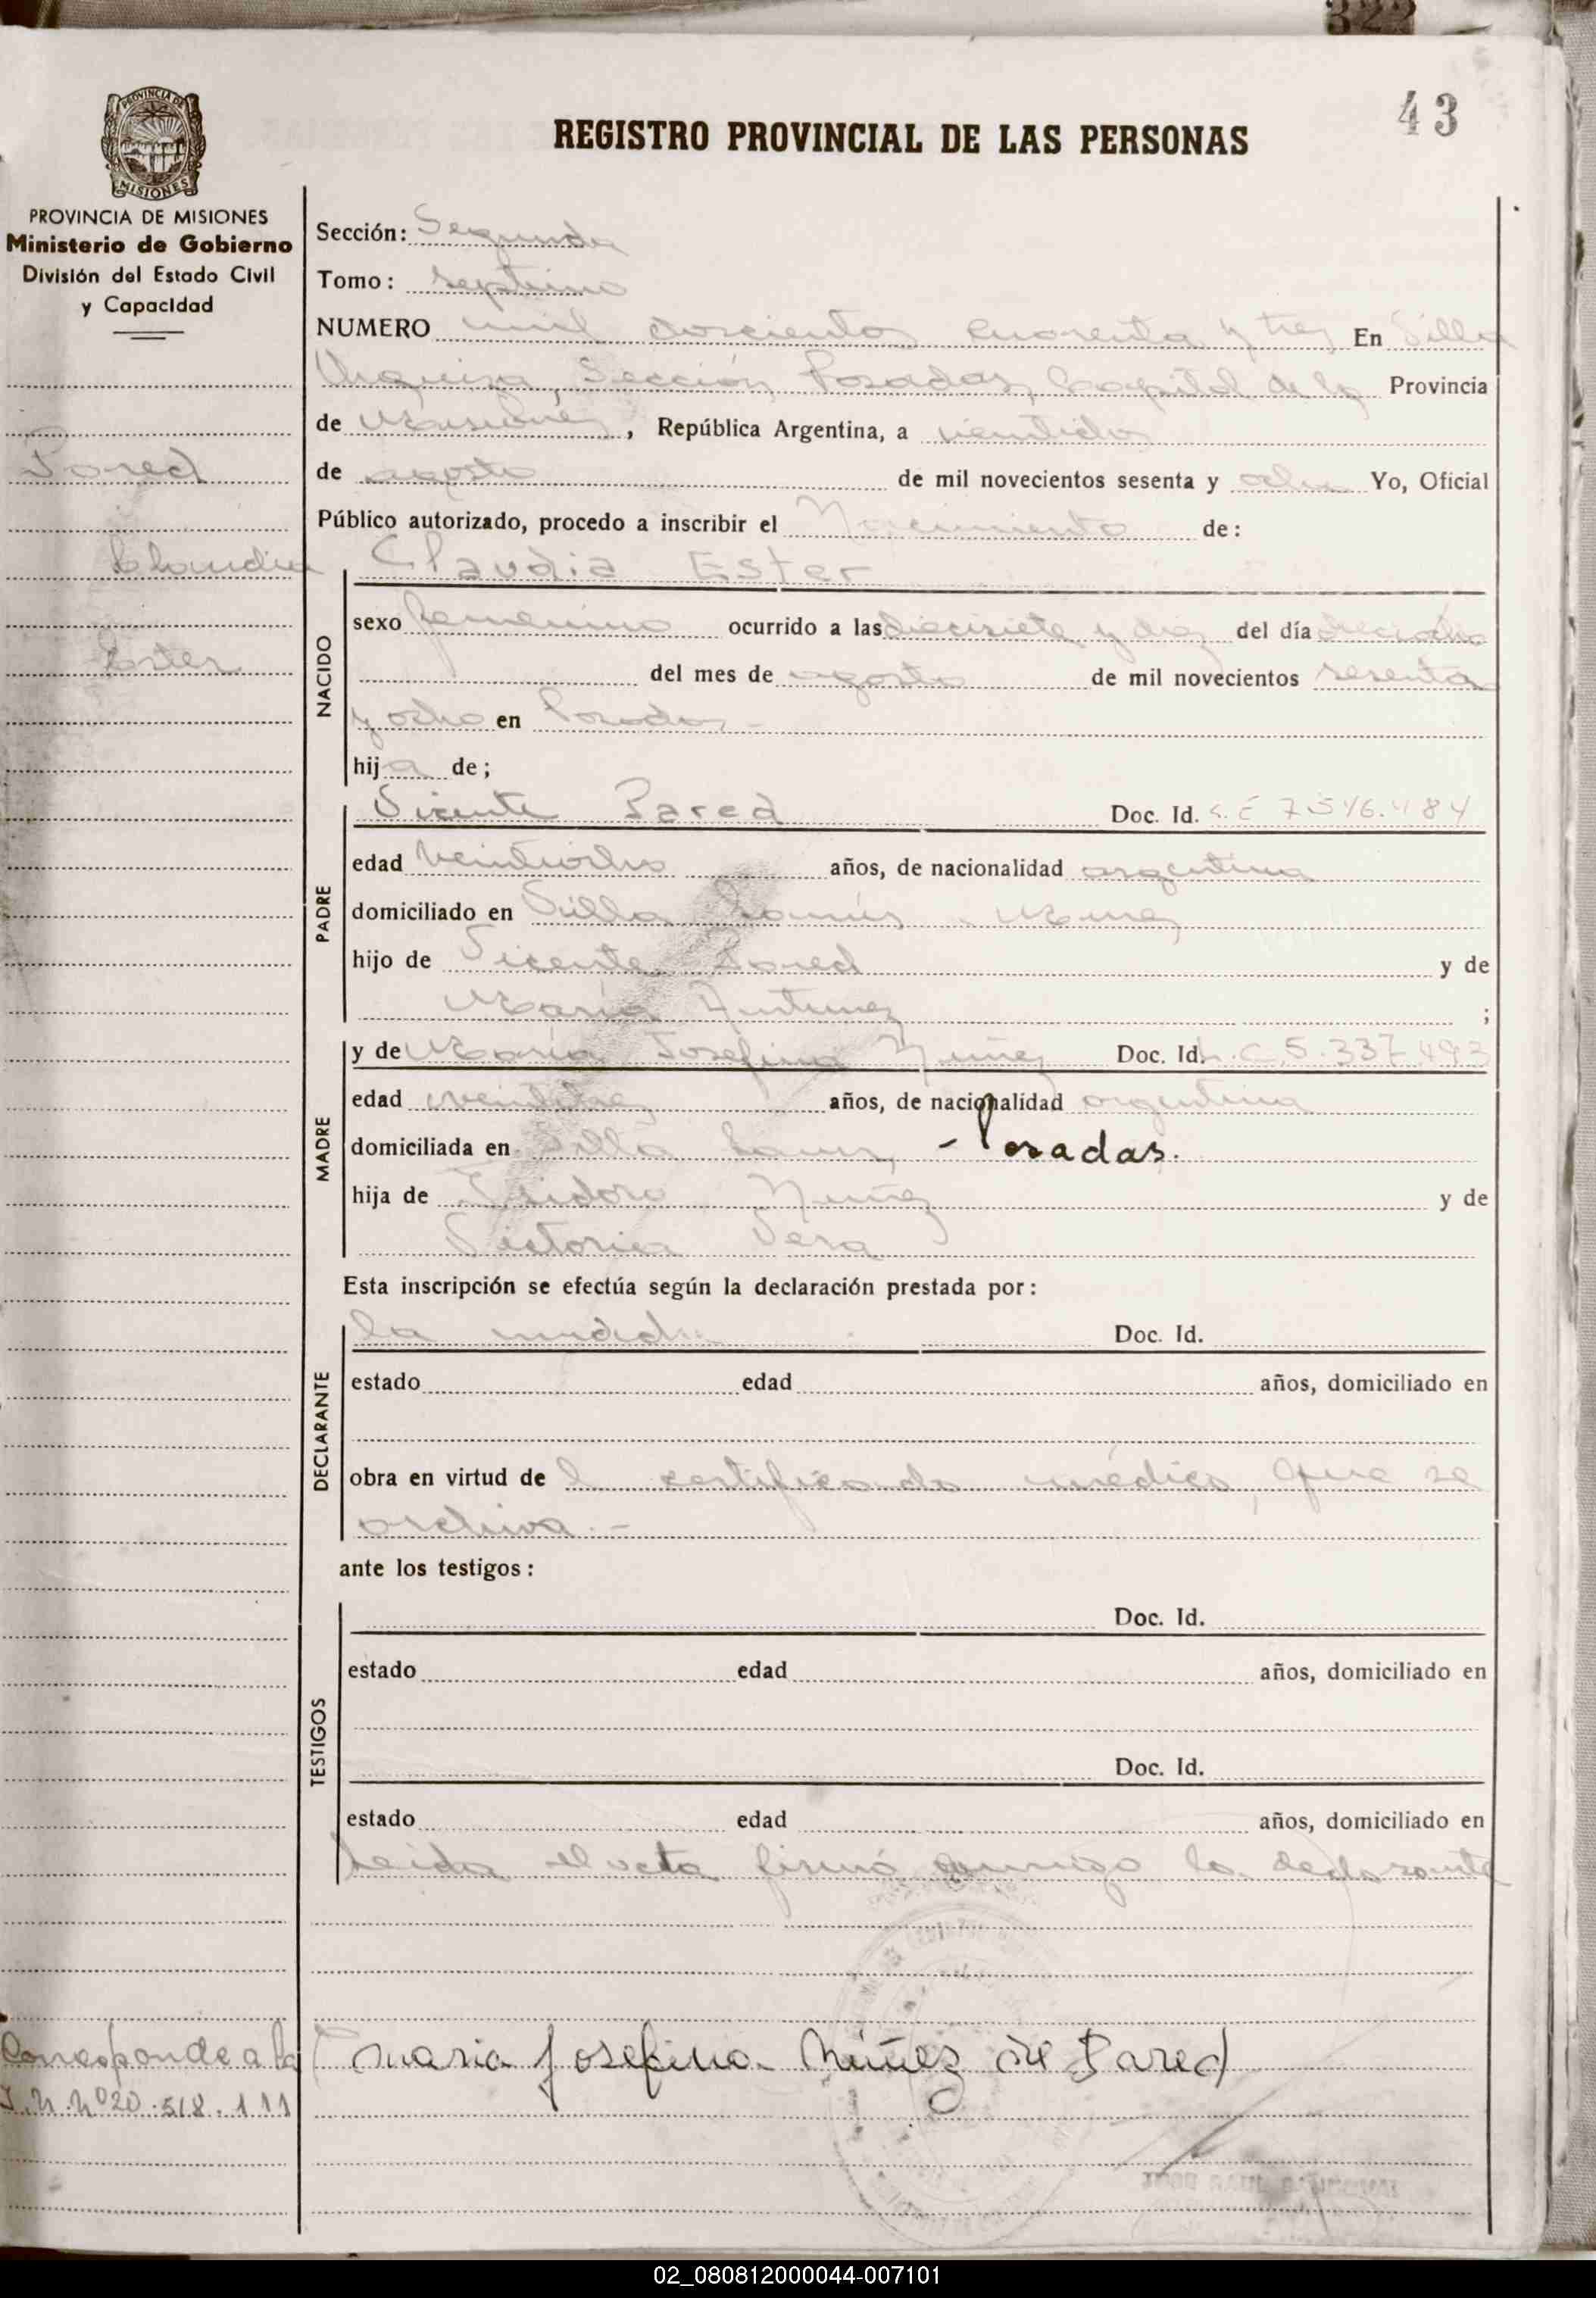 322
43
REGISTRO PROVINCIAL DE LAS PERSONAS
PROVINCIA DE MISIONES
PROVINCIA DE MISIONES
Ministerio de Gobierno
División del Estado Civil
y Capacidad
Pared
Claudia
Ester
Corresponde a la
Nº 20.518.111
Sección: Segunda
Tomo: septimo
NUMERO mil doscientos cuarenta y tres En Villa
Urquiza, Sección Posadas, Capital de la Provincia
de Misiones, República Argentina, a veintidos
de agosto de mil novecientos sesenta y ocho Yo, Oficial
Público autorizado, procedo a inscribir el Nacimiento de:
NACIDO
Claudia Ester
sexo femenino ocurrido a las diecisiete y diez del día dieciocho
del mes de agosto de mil novecientos sesenta
y ocho en Posadas -
hija de;
PADRE
Vicente Pared Doc. Id. L.E 7.546.484
edad veintiocho años, de nacionalidad argentina
domiciliado en Villa Lanús
hijo de Vicente Pared y de
María ;
MADRE
y de María Josefina Nuñez Doc. Id. L.C 5.337.493
edad veintitres años, de nacionalidad argentina
domiciliada en Villa Lanus, - Posadas.
hija de Isidoro Nuñez y de
Victoria Vera
Esta inscripción se efectúa según la declaración prestada por:
DECLARANTE
la madre Doc. Id.
estado edad años, domiciliado en
obra en virtud de l certificado médico, que se
archiva.-
ante los testigos:
TESTIGOS
Doc. Id.
estado edad años, domiciliado en
Doc. Id.
estado edad años, domiciliado en
Leida el acta firmó conmigo la declarante
Maria Josefina Núñez de Pared
02_080812000044-007101